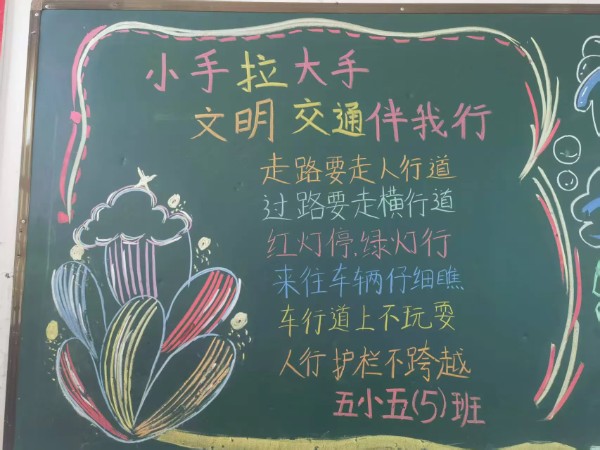 小手拉大手
文明交通伴我行
走路要走人行道
过路要走横行道
红灯停,绿灯行
来往车辆仔细瞧
车行道上不玩耍
人行护栏不跨越
五小五(5)班